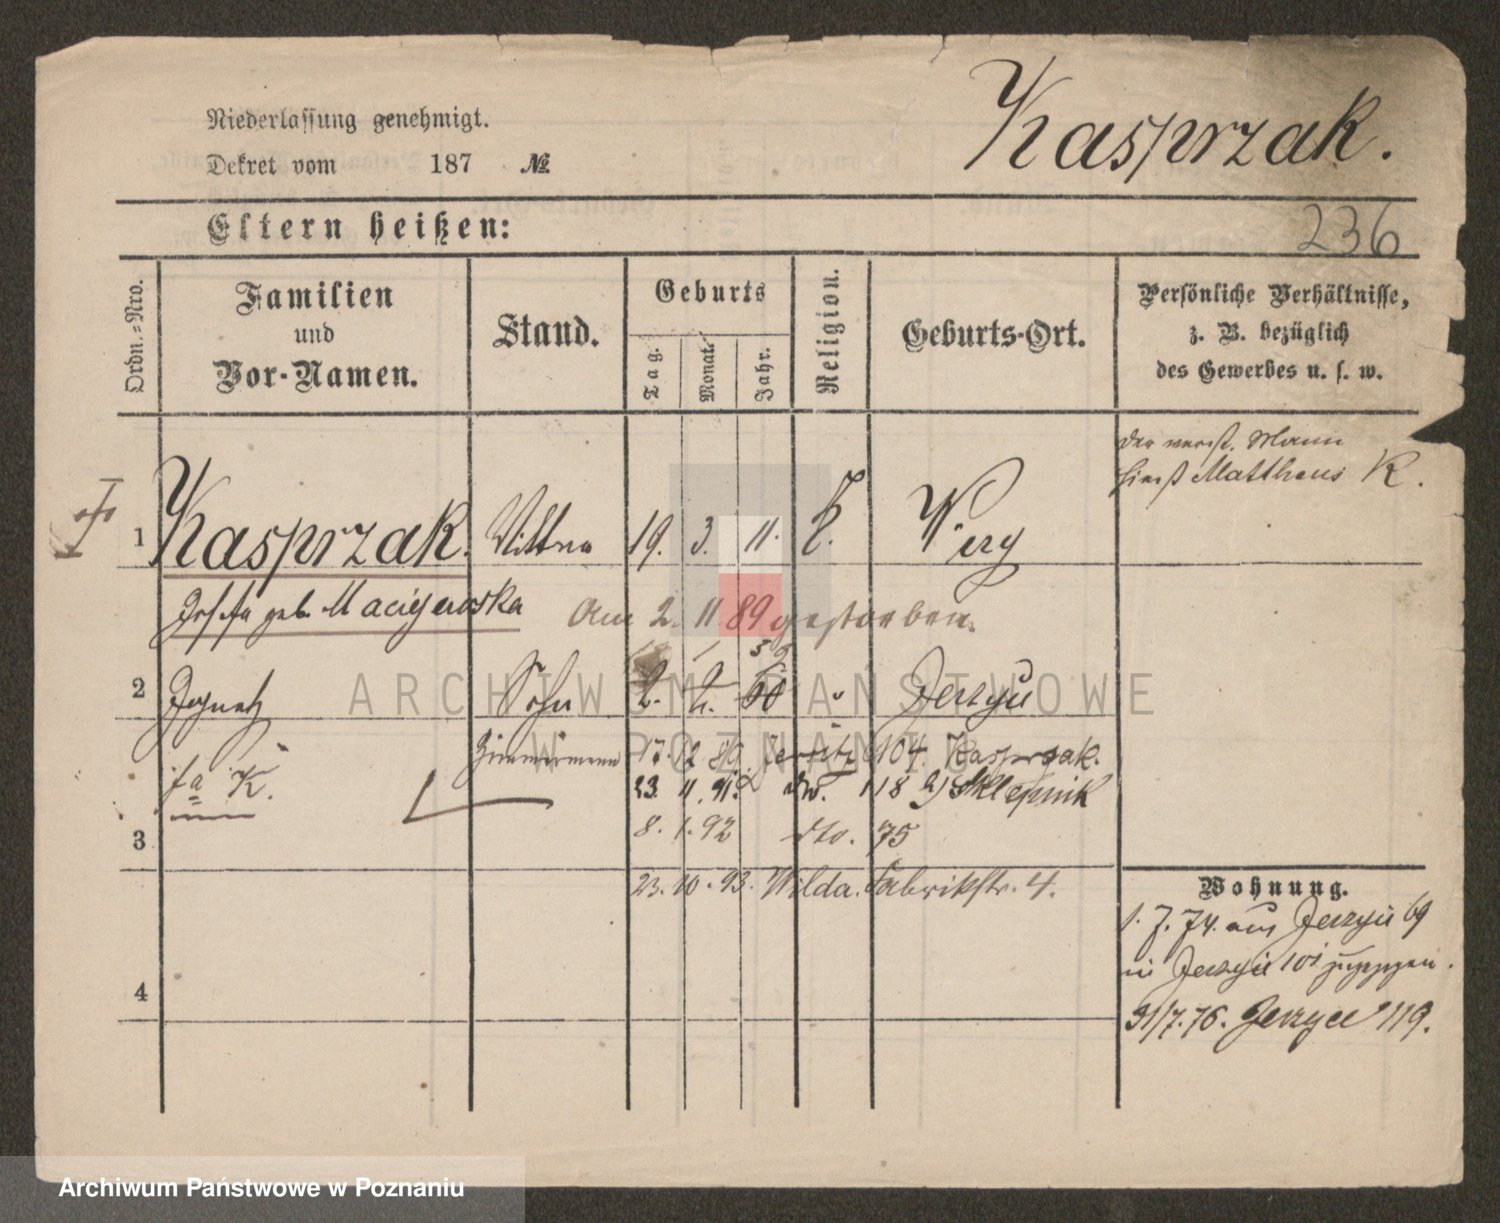 Kasprzak.
Niederlassung genehmigt.
Dekret vom 187 №
236
Eltern heißen:
Ordn.=Nro.
Familien
und
Vor-Namen.
Stand.
Geburts
Tag.
Monat.
Jahr.
Religion.
Geburts-Ort.
Persönliche Verhältnisse,
z. B. bezüglich
des Gewerbes u. s. w.
der verst. Mann
hieß Mattheus K.
1 Kasprzak. Wittwe 19. 3. 11. k.
geb. Maciejewska
Am 2. 11. 89 gestorben.
2 Ignatz Sohn 2. 60 Jerzyce
Zimmermann 17. 12 89. Jersitz 104. Kasprzak.
fa K.
23. 11. 91. 118 Sklepnik
3
8. 1. 92 dto. 75
23. 10. 93. Wilda. Fabrikstr. 4.
Wohnung.
1. 7. 74. aus Jerzyce 69
in Jerzyce 101
4
31/7. 76. Jerzyce 119.
ARCHIWUM PAŃSTWOWE
W POZNANIU
Archiwum Państwowe w Poznaniu